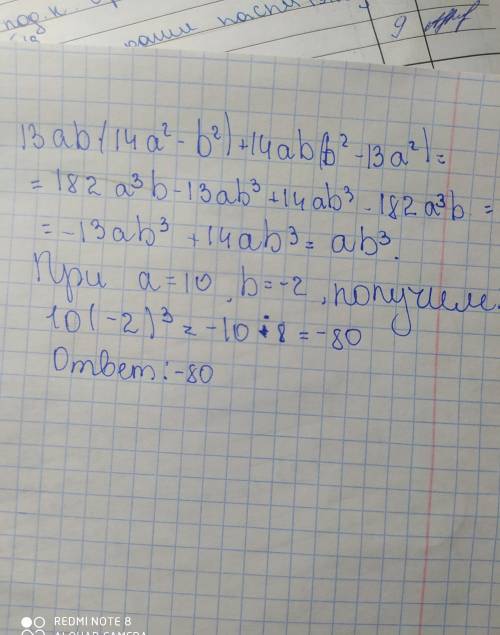 под. к.
9
13ab(14a² - b²)+14ab(b² - 13a²)=
= 182a³b - 13ab³ + 14ab³ - 182a³b =
= -13ab³ + 14ab³ = ab³.
При a=10, b=-2, получим:
10(-2)³ = -10·8 = -80
Ответ: -80
REDMI NOTE 8